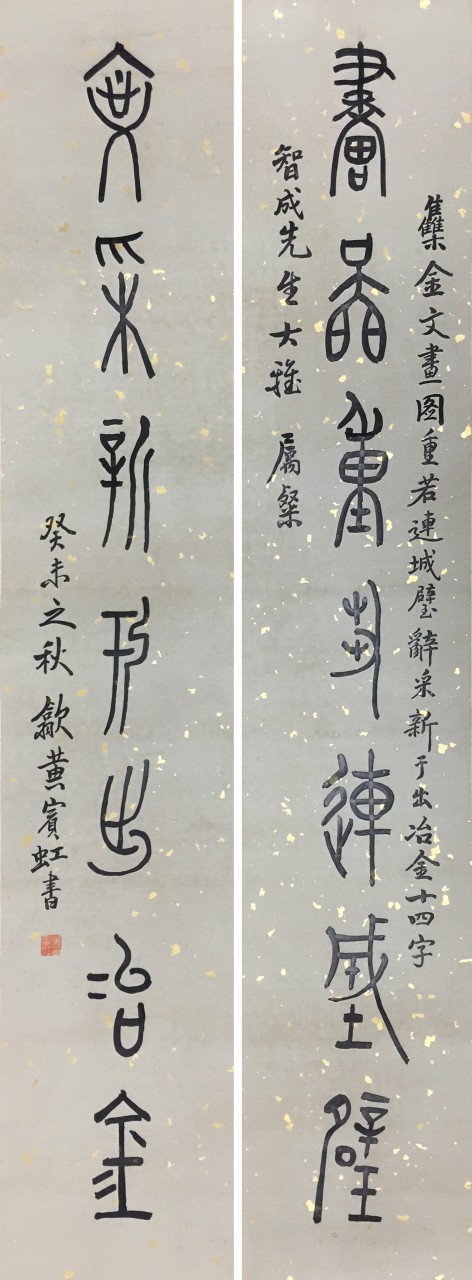 集金文畫圖重若連城璧辭采新于出冶金十四字
畫圖重若連城璧
智成先生大雅 屬粲
辭采新于出冶金
癸未之秋 歙黃賓虹書